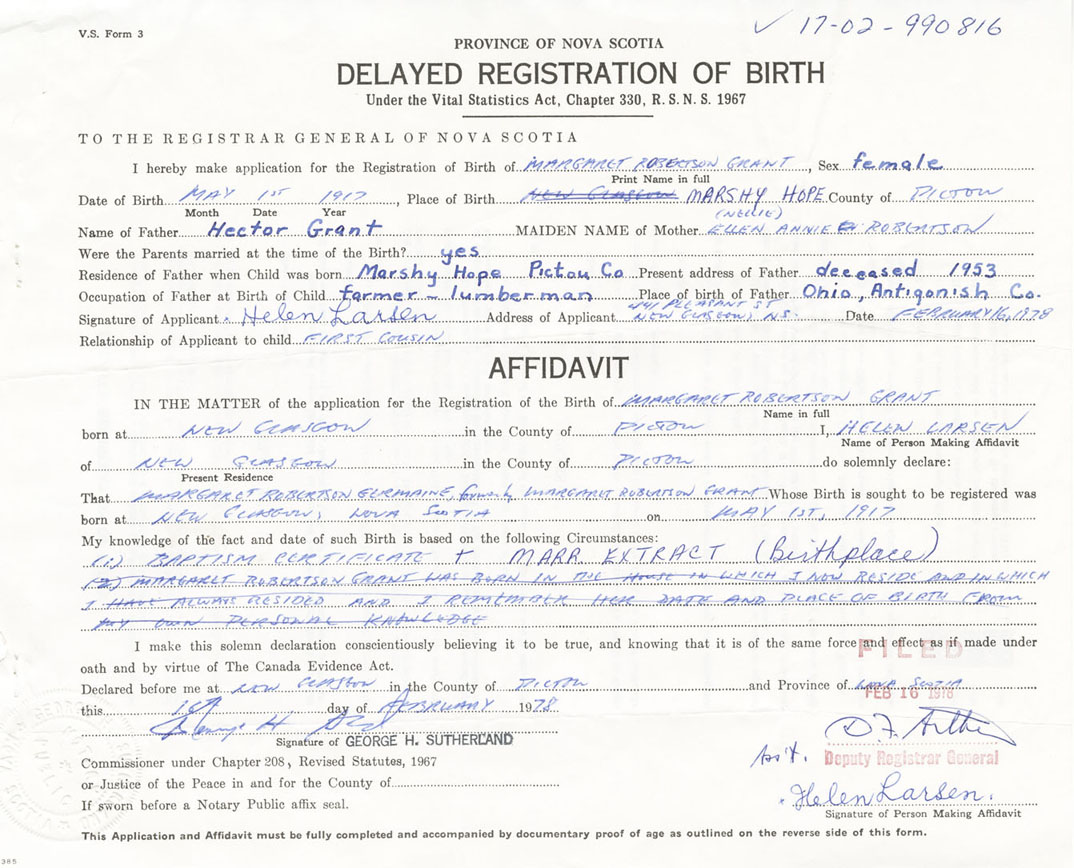 V.S. Form 3
✓ 17-02-990816
PROVINCE OF NOVA SCOTIA
DELAYED REGISTRATION OF BIRTH
Under the Vital Statistics Act, Chapter 330, R. S. N. S. 1967
TO THE REGISTRAR GENERAL OF NOVA SCOTIA
I hereby make application for the Registration of Birth of MARGARET ROBERTSON GRANT, Sex female
Print Name in full
Date of Birth MAY 1ST 1917, Place of Birth NEW GLASGOW MARSHY HOPE County of PICTOU
Month Date Year
(NELLIE)
Name of Father Hector Grant MAIDEN NAME of Mother ELLEN ANNIE ROBERTSON
Were the Parents married at the time of the Birth? yes
Residence of Father when Child was born Marshy Hope Pictou Co Present address of Father deceased 1953
Occupation of Father at Birth of Child farmer - lumberman Place of birth of Father Ohio, Antigonish Co.
Signature of Applicant Helen Larsen Address of Applicant 441 PLEASANT ST NEW GLASGOW, N.S. Date FEBRUARY 16, 1978
Relationship of Applicant to child FIRST COUSIN
AFFIDAVIT
IN THE MATTER of the application for the Registration of the Birth of MARGARET ROBERTSON GRANT
Name in full
born at NEW GLASGOW in the County of PICTOU I, HELEN LARSEN
Name of Person Making Affidavit
of NEW GLASGOW in the County of PICTOU do solemnly declare:
Present Residence
That MARGARET ROBERTSON GERMAINE formerly MARGARET ROBERTSON GRANT Whose Birth is sought to be registered was
born at NEW GLASGOW, NOVA SCOTIA on MAY 1ST, 1917
My knowledge of the fact and date of such Birth is based on the following Circumstances:
(1) BAPTISM CERTIFICATE + MARR. EXTRACT (Birthplace)
(2) MARGARET ROBERTSON GRANT WAS BORN IN THE HOUSE IN WHICH I NOW RESIDE AND IN WHICH
I HAVE ALWAYS RESIDED AND I REMEMBER HER DATE AND PLACE OF BIRTH FROM
MY OWN PERSONAL KNOWLEDGE
I make this solemn declaration conscientiously believing it to be true, and knowing that it is of the same force and effect as if made under
FILED
oath and by virtue of The Canada Evidence Act.
Declared before me at NEW GLASGOW in the County of PICTOU and Province of NOVA SCOTIA
FEB 16 1978
this 16th day of FEBRUARY 1978
Signature of GEORGE H. SUTHERLAND
Commissioner under Chapter 208, Revised Statutes, 1967
Ass't. Deputy Registrar General
or Justice of the Peace in and for the County of
Helen Larsen
If sworn before a Notary Public affix seal.
Signature of Person Making Affidavit
This Application and Affidavit must be fully completed and accompanied by documentary proof of age as outlined on the reverse side of this form.
385